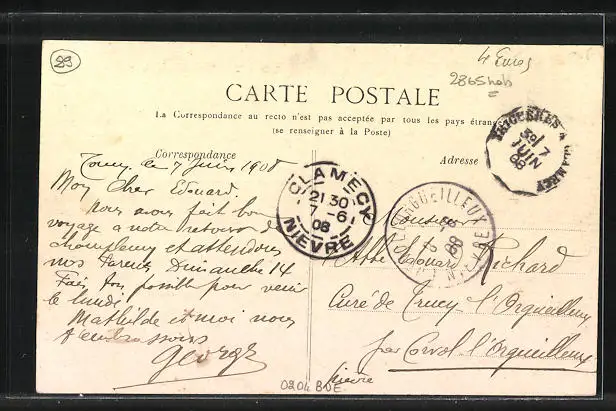 29
4 Euros
2865hob
CARTE POSTALE
La Correspondance au recto n'est pas acceptée par tous les pays étrangers
(se renseigner à la Poste)
Correspondance
Adresse
Toucy le 7 Juin 1908
Mon cher Edouard.
Nous avons fait bon
voyage a notre retour de
champlemy et attendons
nos Parents Dimanche 14
Fais ton possible pour venir
le lundi
Mathilde et moi nous
t'embrassons
George
CLAMECY
21 30
7 -6
08
NIEVRE
JUIN
08
L'ORGUEILLEUX
NIEVRE
Monsieur
l'Abbé Edouard Richard
Curé de Crucy l'Orgueilleux
par Corvol l'Orgueilleux
Nièvre
0204 BDE